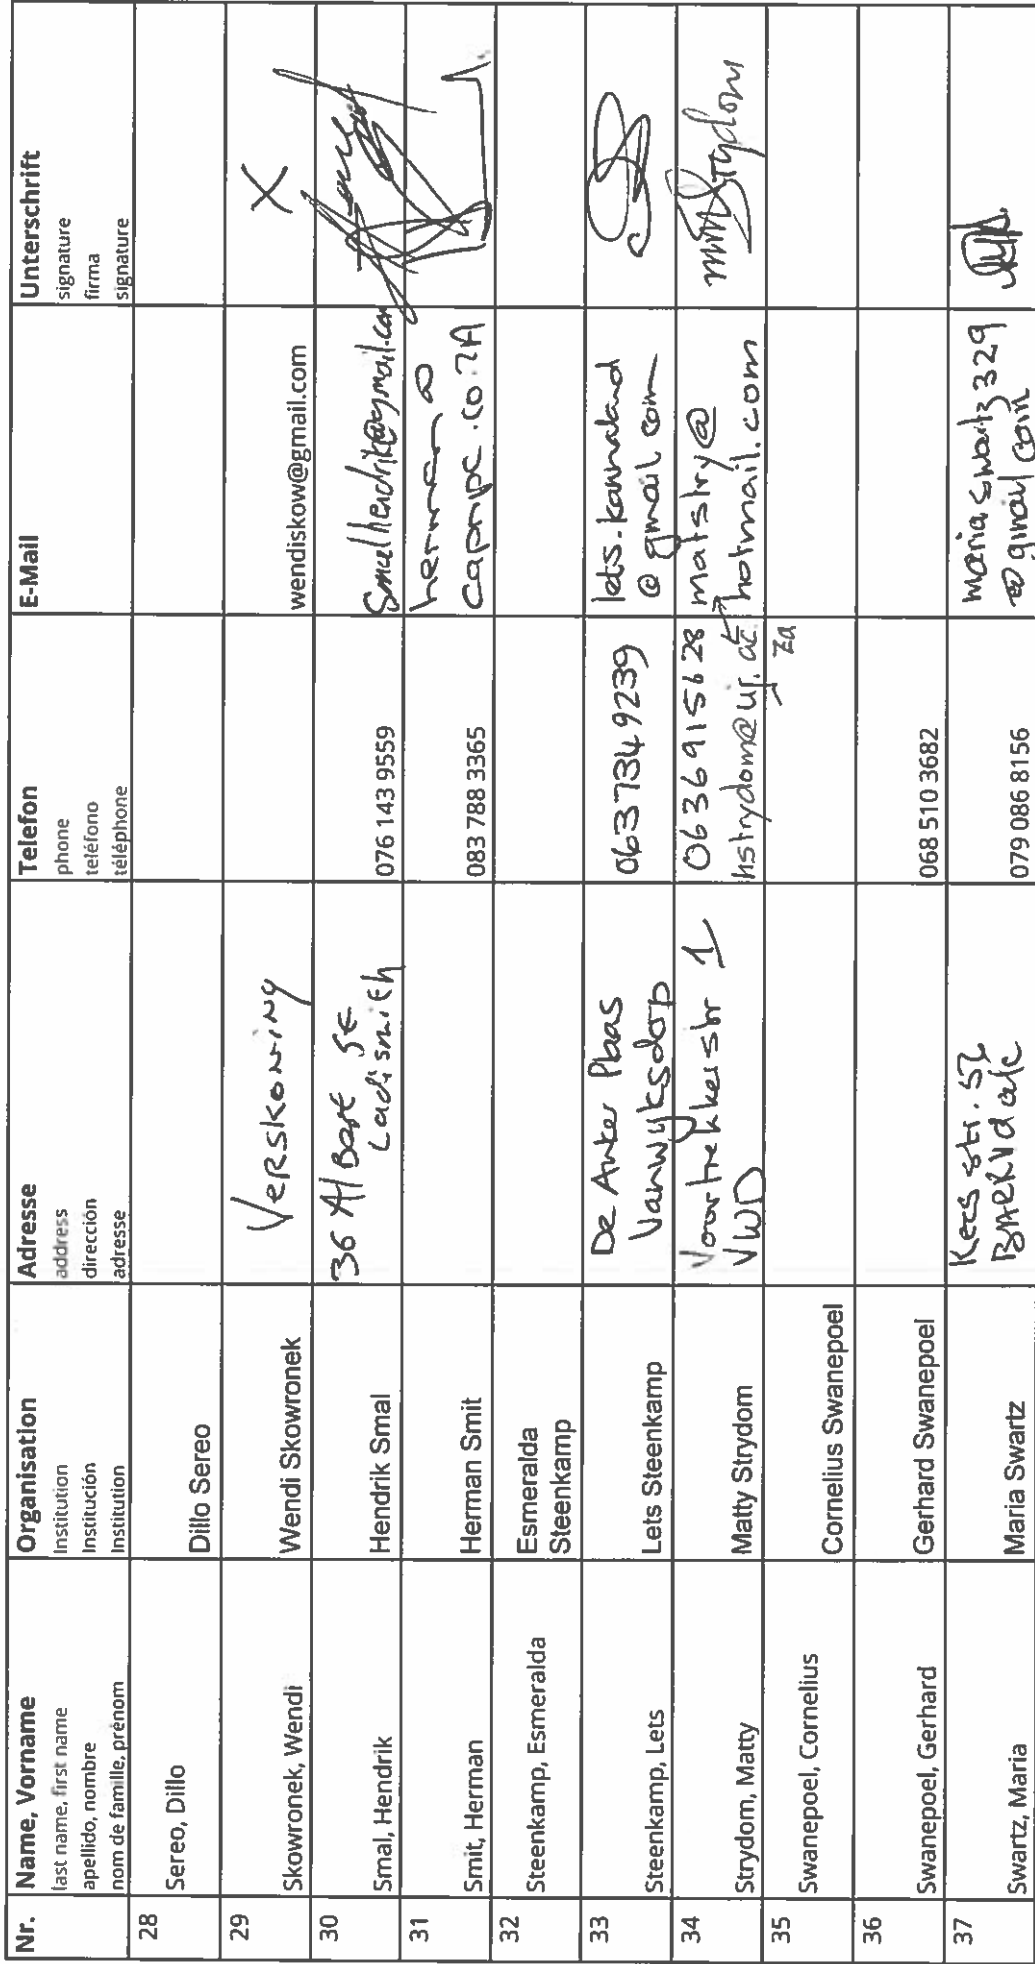 Nr.
Name, Vorname
last name, first name
apellido, nombre
nom de famille, prénom
Organisation
Institution
Institución
Institution
Adresse
address
dirección
adresse
Telefon
phone
teléfono
téléphone
E-Mail
Unterschrift
signature
firma
signature
28
Sereo, Dillo
Dillo Sereo
29
Skowronek, Wendi
Wendi Skowronek
Verskoning
wendiskow@gmail.com
X
30
Smal, Hendrik
Hendrik Smal
36 Albert St
Ladismith
076 143 9559
Smalhendrik@gmail.com
31
Smit, Herman
Herman Smit
083 788 3365
herman@
capnpc.co.ZA
32
Steenkamp, Esmeralda
Esmeralda
Steenkamp
33
Steenkamp, Lets
Lets Steenkamp
De Anker Plaas
Vanwyksdorp
0637349239
lets.kannaland
@gmail com
34
Strydom, Matty
Matty Strydom
Voortrekkerstr 1
VWD
0636915628
hstrydom@uj.ac
za
matstry@
hotmail.com
Strydom
35
Swanepoel, Cornelius
Cornelius Swanepoel
36
Swanepoel, Gerhard
Gerhard Swanepoel
068 510 3682
37
Swartz, Maria
Maria Swartz
Kees str. 52
079 086 8156
mariaswartz329
@gmail com